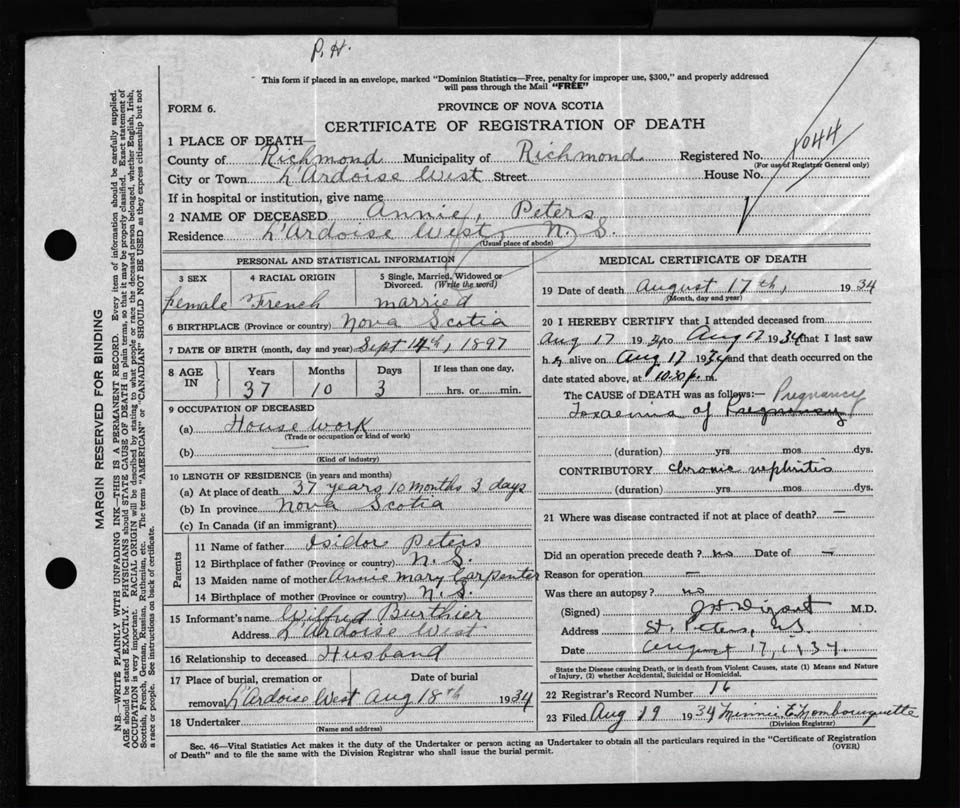 P. H.
This form if placed in an envelope, marked "Dominion Statistics—Free, penalty for improper use, $300," and properly addressed
will pass through the Mail "FREE"
FORM 6.
PROVINCE OF NOVA SCOTIA
CERTIFICATE OF REGISTRATION OF DEATH
1 PLACE OF DEATH—
County of Richmond Municipality of Richmond Registered No. 1044
(For use of Registrar General only)
City or Town L'Ardoise West Street House No.
If in hospital or institution, give name
2 NAME OF DECEASED Annie, Peters
Residence L'Ardoise West, N. S.
(Usual place of abode)
PERSONAL AND STATISTICAL INFORMATION
3 SEX 4 RACIAL ORIGIN 5 Single, Married, Widowed or
Divorced. (Write the word)
female French married
6 BIRTHPLACE (Province or country) Nova Scotia
7 DATE OF BIRTH (month, day and year) Sept 14th, 1897
8 AGE IN Years Months Days If less than one day,
37 10 3 hrs. or min.
9 OCCUPATION OF DECEASED
(a) House work
(Trade or occupation or kind of work)
(b)
(Kind of industry)
10 LENGTH OF RESIDENCE (in years and months)
(a) At place of death 37 years 10 months 3 days
(b) In province Nova Scotia
(c) In Canada (if an immigrant)
Parents
11 Name of father Isidor Peters
12 Birthplace of father (Province or country) N. S.
13 Maiden name of mother Annie Mary Carpenter
14 Birthplace of mother (Province or country) N. S.
15 Informant's name Wilfred Burthier
Address L'Ardoise West
16 Relationship to deceased Husband
17 Place of burial, cremation or Date of burial
removal L'Ardoise West Aug 18th 1934
18 Undertaker
(Name and address)
MEDICAL CERTIFICATE OF DEATH
19 Date of death August 17th, 1934
(Month, day and year)
20 I HEREBY CERTIFY that I attended deceased from
Aug 17 1934 to Aug 17 1934 that I last saw
h alive on Aug 17 1934 and that death occurred on
date stated above, at 10.30 p. m.
The CAUSE OF DEATH was as follows:— Pregnancy
Toxaemia of Pregnancy
(duration) yrs mos dys.
CONTRIBUTORY chronic nephritis
(duration) yrs mos dys.
21 Where was disease contracted if not at place of death? —
Did an operation precede death? no Date of —
Reason for operation —
Was there an autopsy? no
(Signed) M.D.
Address St. Peters, N.S.
Date August 17, 1934.
State the Disease causing Death, or in death from Violent Causes, state (1) Means and Nature
of Injury, (2) whether Accidental, Suicidal or Homicidal.
22 Registrar's Record Number 16
23 Filed Aug 19 1934 Minnie E Mombourquette
(Division Registrar)
Sec. 46—Vital Statistics Act makes it the duty of the Undertaker or person acting as Undertaker to obtain all the particulars required in the "Certificate of Registration
of Death" and to file the same with the Division Registrar who shall issue the burial permit. (OVER)
MARGIN RESERVED FOR BINDING
N.B.—WRITE PLAINLY WITH UNFADING INK—THIS IS A PERMANENT RECORD. Every item of information should be carefully supplied.
AGE should be stated EXACTLY. PHYSICIANS should STATE CAUSE OF DEATH in plain terms, so that it may be properly classified. Exact statement of
OCCUPATION is very important. RACIAL ORIGIN will be described by stating to what people or race the deceased person belonged, whether English, Irish,
Scottish, French, German, Russian, Ruthenian, etc. The terms "AMERICAN" or "CANADIAN" SHOULD NOT BE USED as they express citizenship but not
a race or people. See instructions on back of certificate.